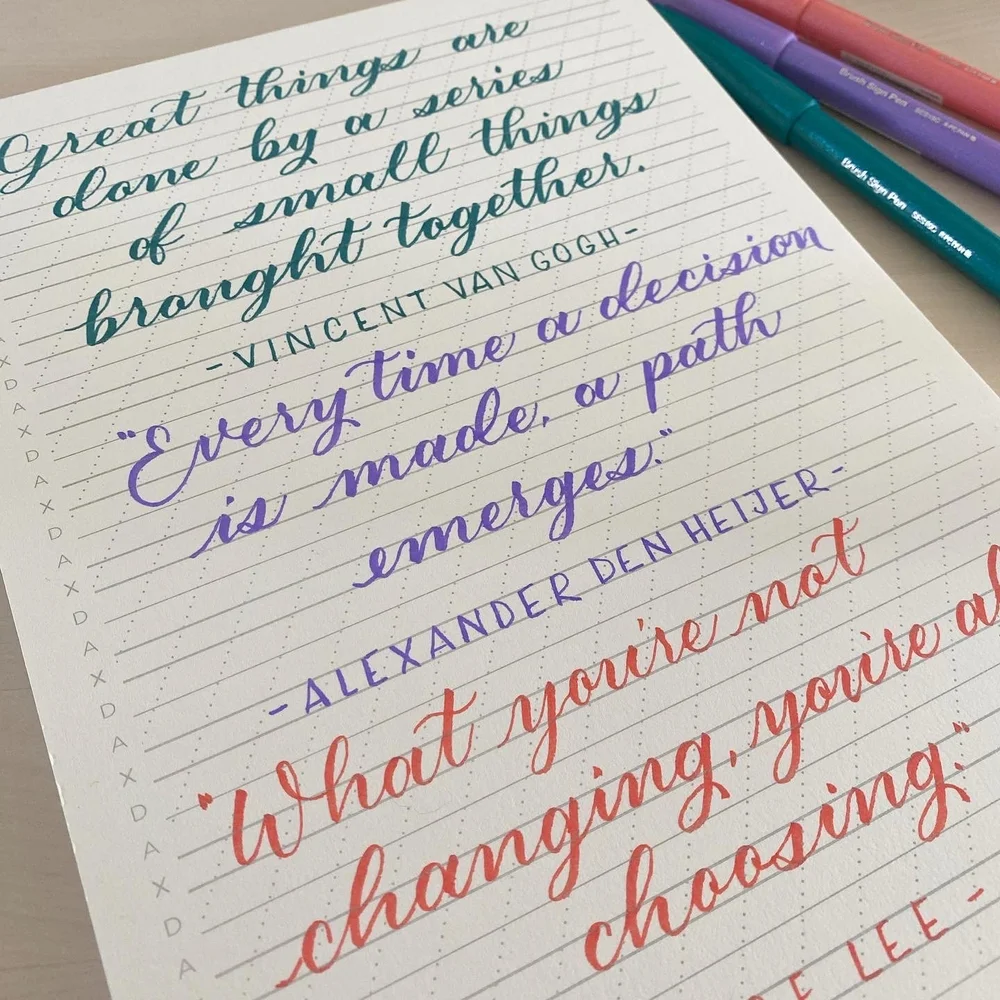 Great things are
done by a series
of small things
brought together.
-VINCENT VAN GOGH-
"Every time a decision
is made, a path
emerges."
-ALEXANDER DEN HEIJER-
"What you're not
changing, you're al
choosing."
LEE -
Brush Sign Pen
Brush Sign Pen
X
D
A
X
D
A
X
D
A
X
D
A
X
D
A
X
D
A
X
D
A